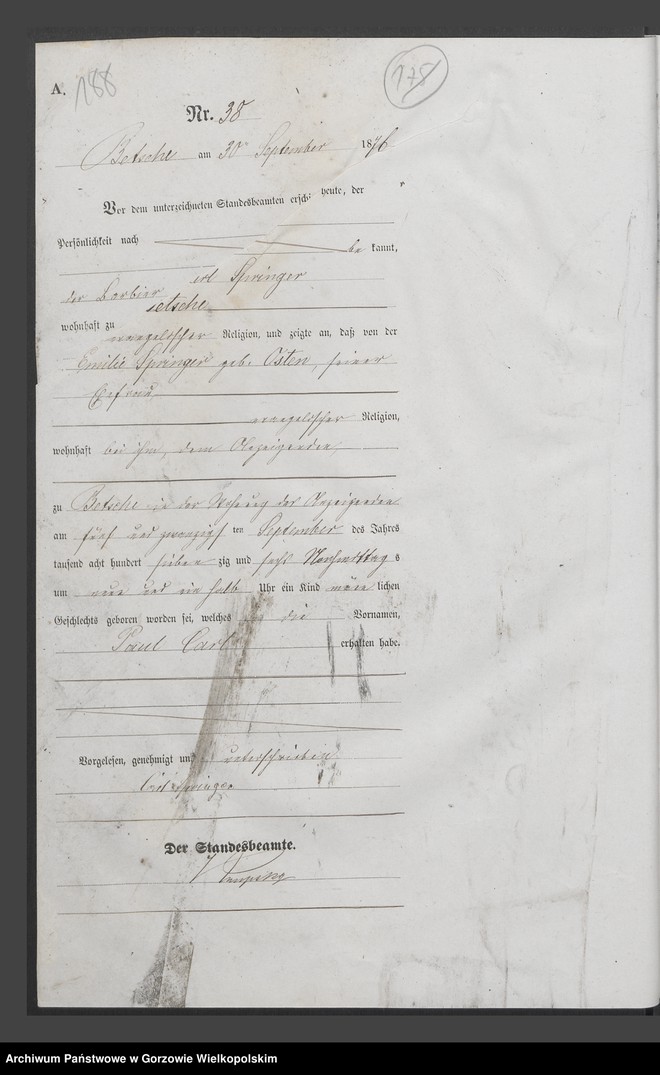 A.
188
178
Nr. 38
Betsche am 30 September 1876
Vor dem unterzeichneten Standesbeamten ersch heute, der
Persönlichkeit nach
be kannt,
der Barbier Carl Springer
wohnhaft zu Betsche
evangelischer Religion, und zeigte an, daß von der
Emilie Springer geb. Osten, seiner
Ehefrau
evangelischer Religion,
wohnhaft bei ihm, dem Anzeigenden,
zu Betsche in der Wohnung des Anzeigenden
am fünf und zwanzigs ten September des Jahres
tausend acht hundert sieben zig und sechs Nachmittag s
um und ein halb Uhr ein Kind männ lichen
Geschlechts geboren worden sei, welches die Vornamen,
Paul Carl erhalten habe.
Vorgelesen, genehmigt und unterschrieben
Carl Springer
Der Standesbeamte.